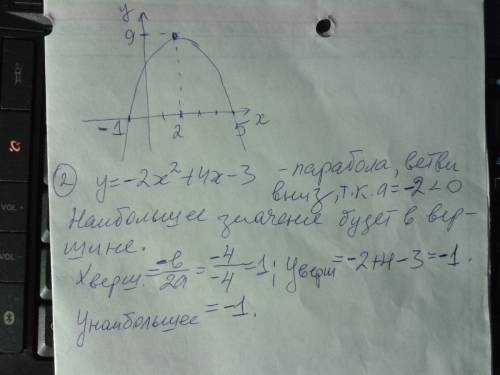 y
9
-1 2 5 x
② y=-2x²+4x-3 - парабола, ветви
вниз, т.к. a=-2<0
Наибольшее значение будет в вер-
шине.
Xверш.=-b/2a=-4/-4=1; yверш=-2+4-3=-1.
Yнаибольшее=-1.
VOL -
VOL +